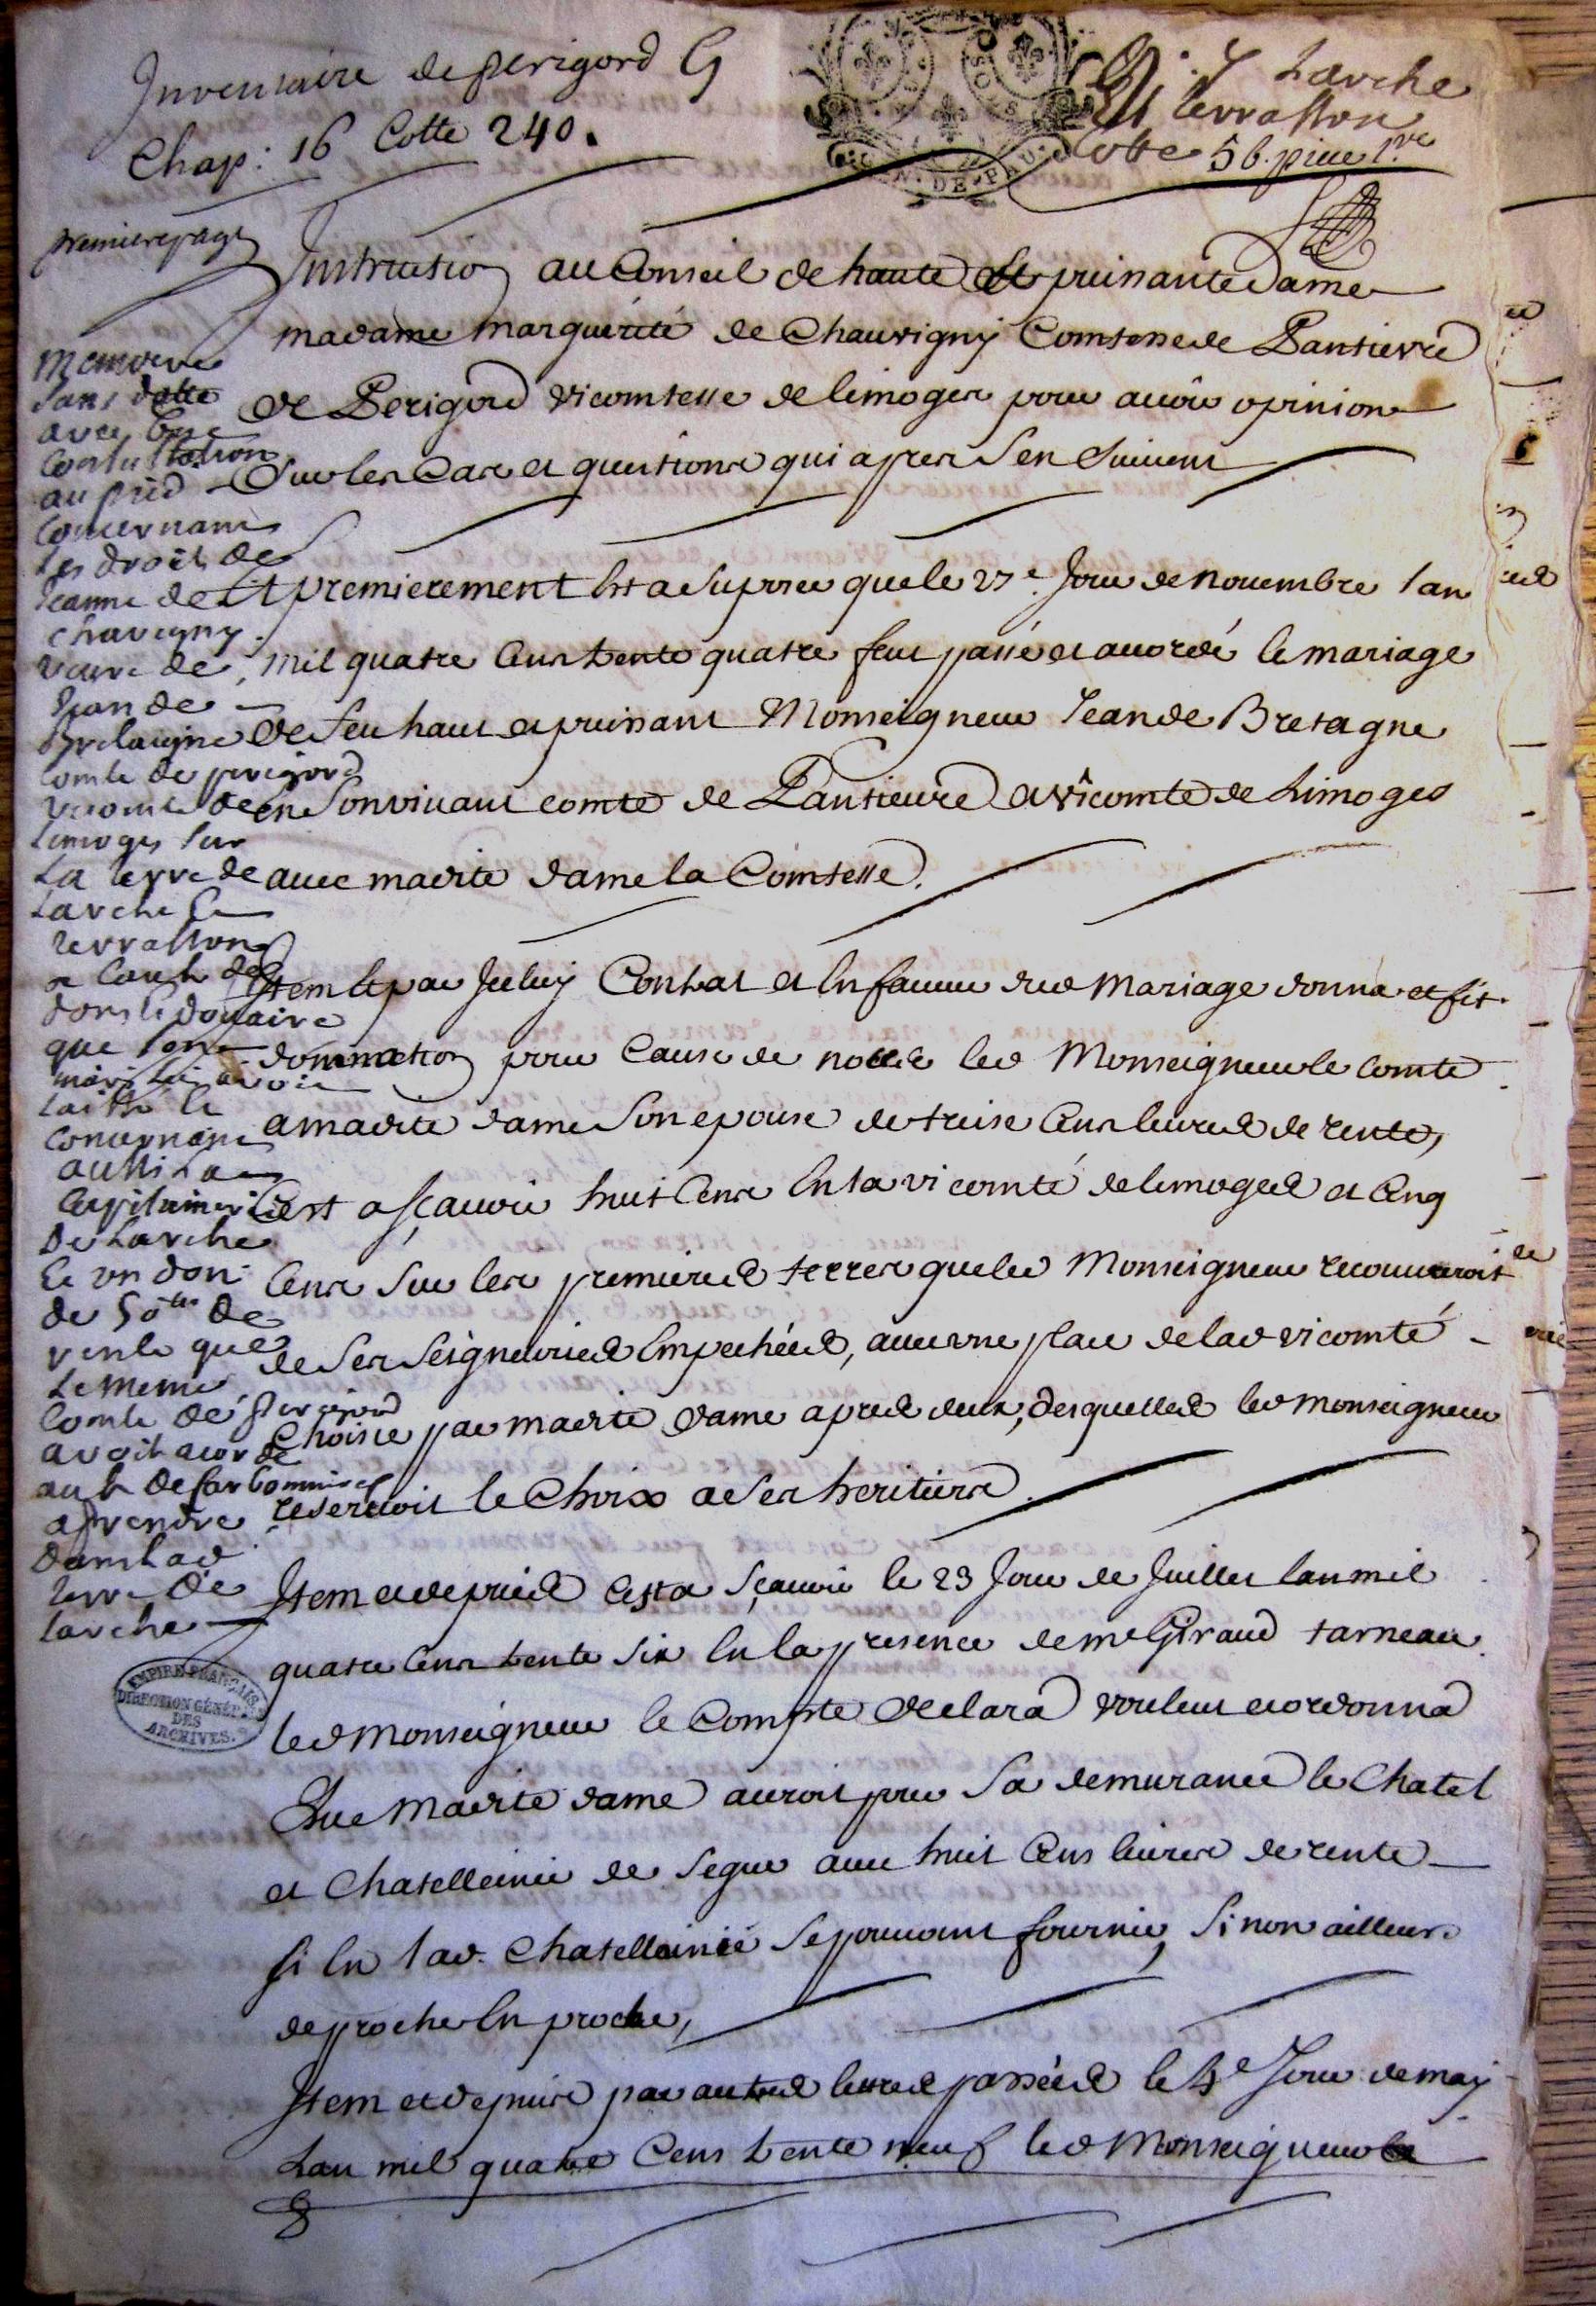 Inventaire de perigord G
Chap: 16 Cotte 240.
Larche
Et terrasson
Cotte 56. piece 1.re
GEN. DE. PAU.
premiere page
Instruction au Conseil de haute Et puissante dame
madame marguérité de Chauvigny Comtesse de Pantievre
de Perigord vicomtesse de limoges pour avoir opinion
Sur les Cas et questions qui apres s'en suivent
Et premierement Est a suposer que le 27e. Jour de novembre l'an
mil quatre Cens trente quatre feut passé et accordé le mariage
de feu haut et puissant Monseigneur Jean de Bretagne
en Son vivant comte de Pantieuvre et vicomte de Limoges
avec madite dame la Comtesse.
Item et par Iceluy Contrat et En faveur dud mariage donna et fit
donnaction pour Cause de noces led Monseigneur le comte
a madite dame Son epouse de treise Cens livres de rente,
C'est a sçavoir huit Cens En la vicomté de limoges et Cinq
Cens Sur les premieres terres que led Monseigneur recouvreroit
de Ses Seigneuries Empechées, avec une place de lad vicomté
Choisie par madite dame apres deux, desquelles led monseigneur
reservoit le Choix a Ses heritiers.
Item et depuis C'est a Sçavoir le 23 Jour de Juillet l'an mil
quatre Cens trente Six En la presence de me Giraud tarneau
led monseigneur le Compte declara vouleut et ordonna
Que madite dame auroit pour Sa demurance le Chatel
et Chatelleinie de Segur avec huit Cens livres de rente
si En lad. Chatelleinie Se pouvoint fournir, Sinon ailleurs
de proche En proche,
Item et depuis par autres lettres passées le 4e Jour de may
Lan mil quatre Cens trente neuf led Monseigneur le
memoire
sans datte
avec une
Consultation
au pied
Concernant
Les droits de
Jeanne de
Chavigny
veuve de
Jean de
Bretaigne
Comte de perigord
vicomte de
Limoges sur
La terre de
Larche Et
terrasson
a Cause de
dons Et douaire
que son
mari lui avoit
laissé Et
Concernant
aussi La
Capitainerie
De Larche
Et un don
de 50 lt de
rente que
Le meme
Comte de perigord
avoit acordé
au sr de Carbonnieres
a prendre
dans lad
terre de
larche
EMPIRE FRANÇAIS
DIRECTION GÉNÉRALE
DES
ARCHIVES.